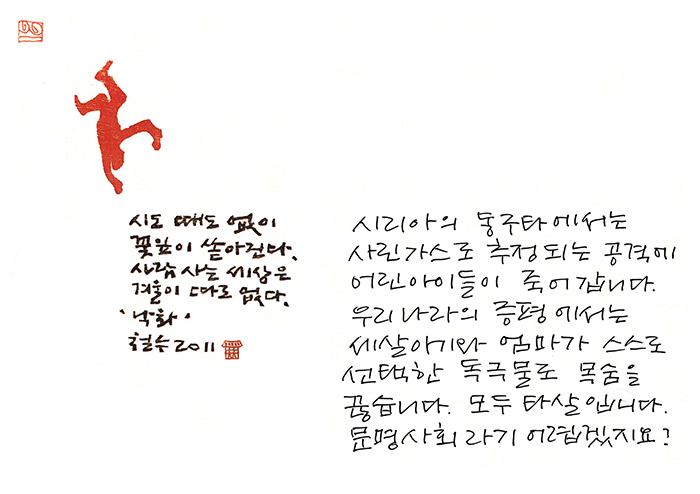 시도 때도 없이
꽃잎이 쏟아진다.
사람 사는 세상은
겨울이 따로 없다.
'낙화'
철수 2011
시리아의 둥주타에서는
사린가스로 추정되는 공격에
어린아이들이 죽어 갑니다.
우리나라의 증평에서는
세살아기와 엄마가 스스로
선택한 독극물로 목숨을
끊습니다. 모두 타살입니다.
문명사회라기 어렵겠지요?